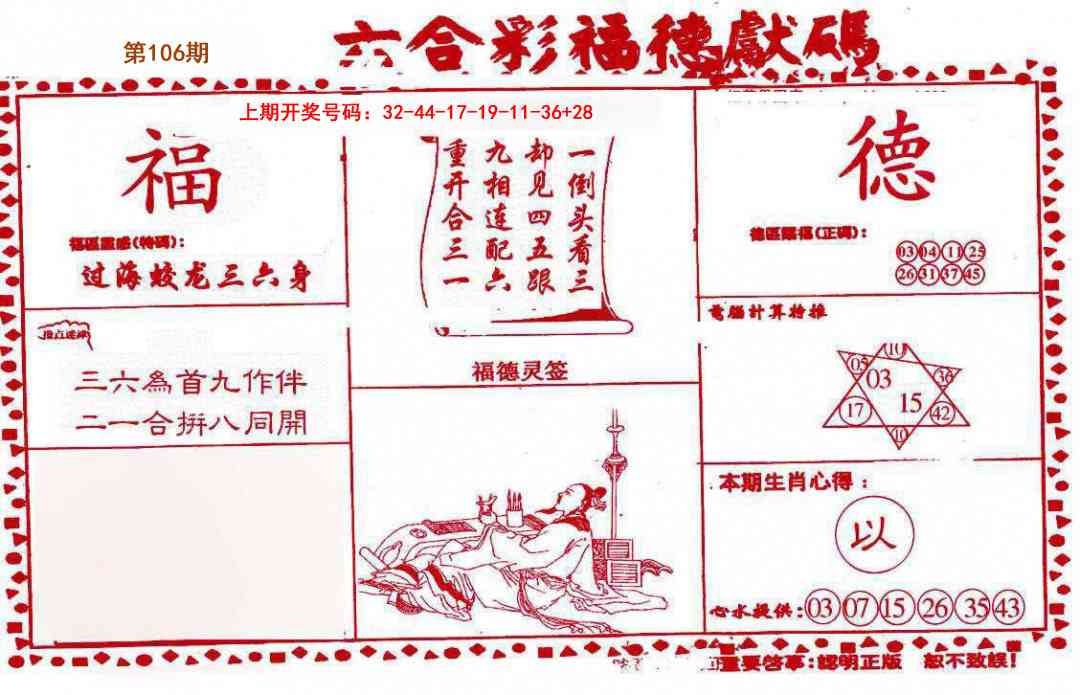 第106期
六合彩福德獻碼
上期开奖号码：32-44-17-19-11-36+28
福
福區靈感(特碼)：
过海蛟龙三六身
三六為首九作伴
二一合拚八同開
一倒头看三
却见四五跟
九相连配六
重开合三一
福德灵签
德
德區賜福(正碼)：
03 04 11 25
26 31 37 45
電腦計算特推
10
05 03 36
17 15 42
10
本期生肖心得：
以
心水提供：03 07 15 26 35 43
重要啓事：認明正版 恕不致誤！